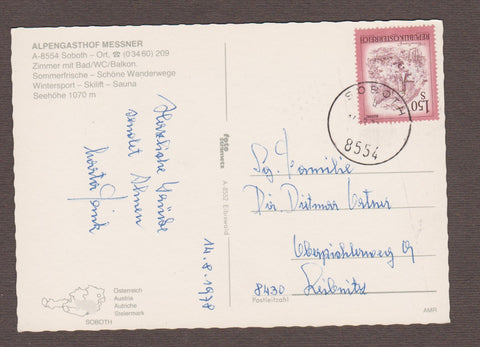 ALPENGASTHOF MESSNER
A-8554 Soboth – Ort, ☎ (03460) 209
Zimmer mit Bad/WC/Balkon.
Sommerfrische – Schöne Wanderwege
Wintersport – Skilift – Sauna
Seehöhe 1070 m
Herzliche Grüße
sendet Ihnen
14.8.1978
Österreich
Austria
Autriche
Steiermark
SOBOTH
foto
A-8552 Eibiswald
REPUBLIK ÖSTERREICH
S 1.50
SOBOTH
8554
Familie
Dir Dietmar Ortner
Oberpichlerweg 9
8430 Leibnitz
Postleitzahl
AMR